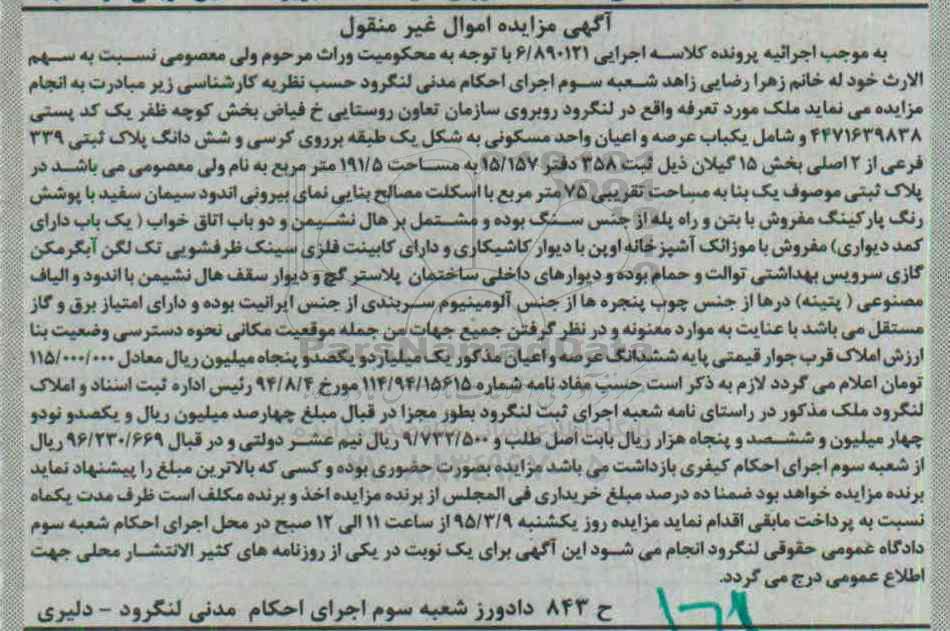 آگهی مزایده اموال غیر منقول
به موجب اجرائیه پرونده کلاسه اجرایی ۶/۸۹۰۱۲۱ با توجه به محکومیت وراث مرحوم ولی معصومی نسبت به سهم
الارث خود له خانم زهرا رضایی زاهد شعبه سوم اجرای احکام مدنی لنگرود حسب نظریه کارشناسی زیر مبادرت به انجام
مزایده می نماید ملک مورد تعرفه واقع در لنگرود روبروی سازمان تعاون روستایی خ فیاض بخش کوچه ظفر یک کد پستی
۴۴۷۱۶۳۹۸۳۸ و شامل یکباب عرصه و اعیان واحد مسکونی به شکل یک طبقه برروی کرسی و شش دانگ پلاک ثبتی ۳۳۹
فرعی از ۲ اصلی بخش ۱۵ گیلان ذیل ثبت ۳۵۸ دفتر ۱۵/۱۵۷ به مساحت ۱۹۱/۵ متر مربع به نام ولی معصومی می باشد در
پلاک ثبتی موصوف یک بنا به مساحت تقریبی ۷۵ متر مربع با اسکلت مصالح بنایی نمای بیرونی اندود سیمان سفید با پوشش
رنگ پارکینگ مفروش با بتن و راه پله از جنس سنگ بوده و مشتمل بر هال نشیمن و دو باب اتاق خواب ( یک باب دارای
کمد دیواری) مفروش با موزائک آشپز خانه اوپن با دیوار کاشیکاری و دارای کابینت فلزی سینک ظرفشویی تک لگن آبگرمکن
گازی سرویس بهداشتی توالت و حمام بوده و دیوارهای داخلی ساختمان پلاستر گچ و دیوار سقف هال نشیمن با اندود و الیاف
مصنوعی ( پتینه) درها از جنس چوب پنجره ها از جنس آلومینیوم سربندی از جنس ایرانیت بوده و دارای امتیاز برق و گاز
مستقل می باشد با عنایت به موارد معنونه و در نظر گرفتن جمیع جهات من جمله موقعیت مکانی نحوه دسترسی وضعیت بنا
ارزش املاک قرب جوار قیمتی پایه ششدانگ عرصه و اعیان مذکور یک میلیارد و یکصد و پنجاه میلیون ریال معادل ۱۱۵/۰۰۰/۰۰۰
تومان اعلام می گردد لازم به ذکر است حسب مفاد نامه شماره ۱۱۴/۹۴/۱۵۶۱۵ مورخ ۹۴/۸/۴ رئیس اداره ثبت اسناد و املاک
لنگرود ملک مذکور در راستای نامه شعبه اجرای ثبت لنگرود بطور مجزا در قبال مبلغ چهارصد میلیون ریال و یکصدو نودو
چهار میلیون و ششصد و پنجاه هزار ریال بابت اصل طلب و ۹/۷۳۲/۵۰۰ ریال نیم عشر دولتی و در قبال ۹۶/۲۳۰/۶۶۹ ریال
از شعبه سوم اجرای احکام کیفری بازداشت می باشد مزایده بصورت حضوری بوده و کسی که بالاترین مبلغ را پیشنهاد نماید
برنده مزایده خواهد بود ضمنا ده درصد مبلغ خریداری فی المجلس از برنده مزایده اخذ و برنده مکلف است ظرف مدت یکماه
نسبت به پرداخت مابقی اقدام نماید مزایده روز یکشنبه ۹۵/۳/۹ از ساعت ۱۱ الی ۱۲ صبح در محل اجرای احکام شعبه سوم
دادگاه عمومی حقوقی لنگرود انجام می شود این آگهی برای یک نوبت در یکی از روزنامه های کثیر الانتشار محلی جهت
اطلاع عمومی درج می گردد.
ح ۸۴۳ دادورز شعبه سوم اجرای احکام مدنی لنگرود - دلیری
ParsNamadData